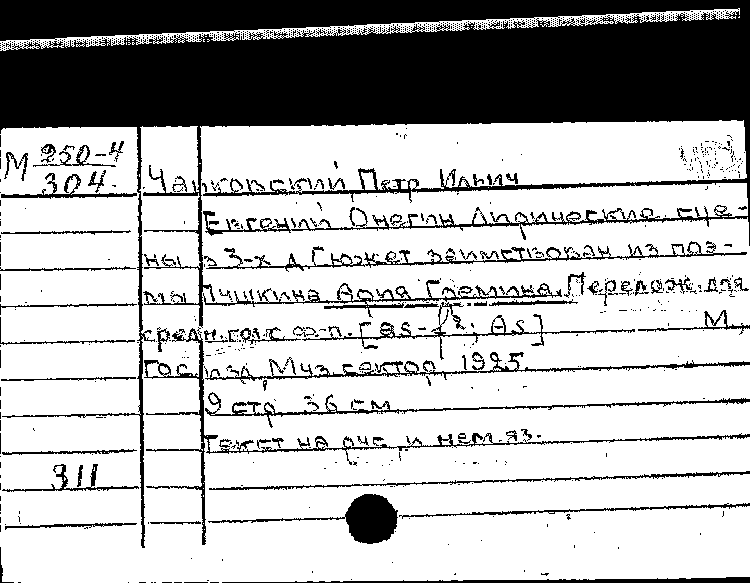 М 250-4
304.
Чайковский, Петр Ильич
Евгений Онегин. Лирические сце-
ны в 3-х д. Сюжет заимствован из поэ-
мы Пушкина Ария Гремина. Перелож. для
средн. гол. с ф-п. [as-f²; As] М.,
Гос. изд. Муз. сектор, 1925.
9 стр. 36 см.
Текст на рус. и нем. яз.
311